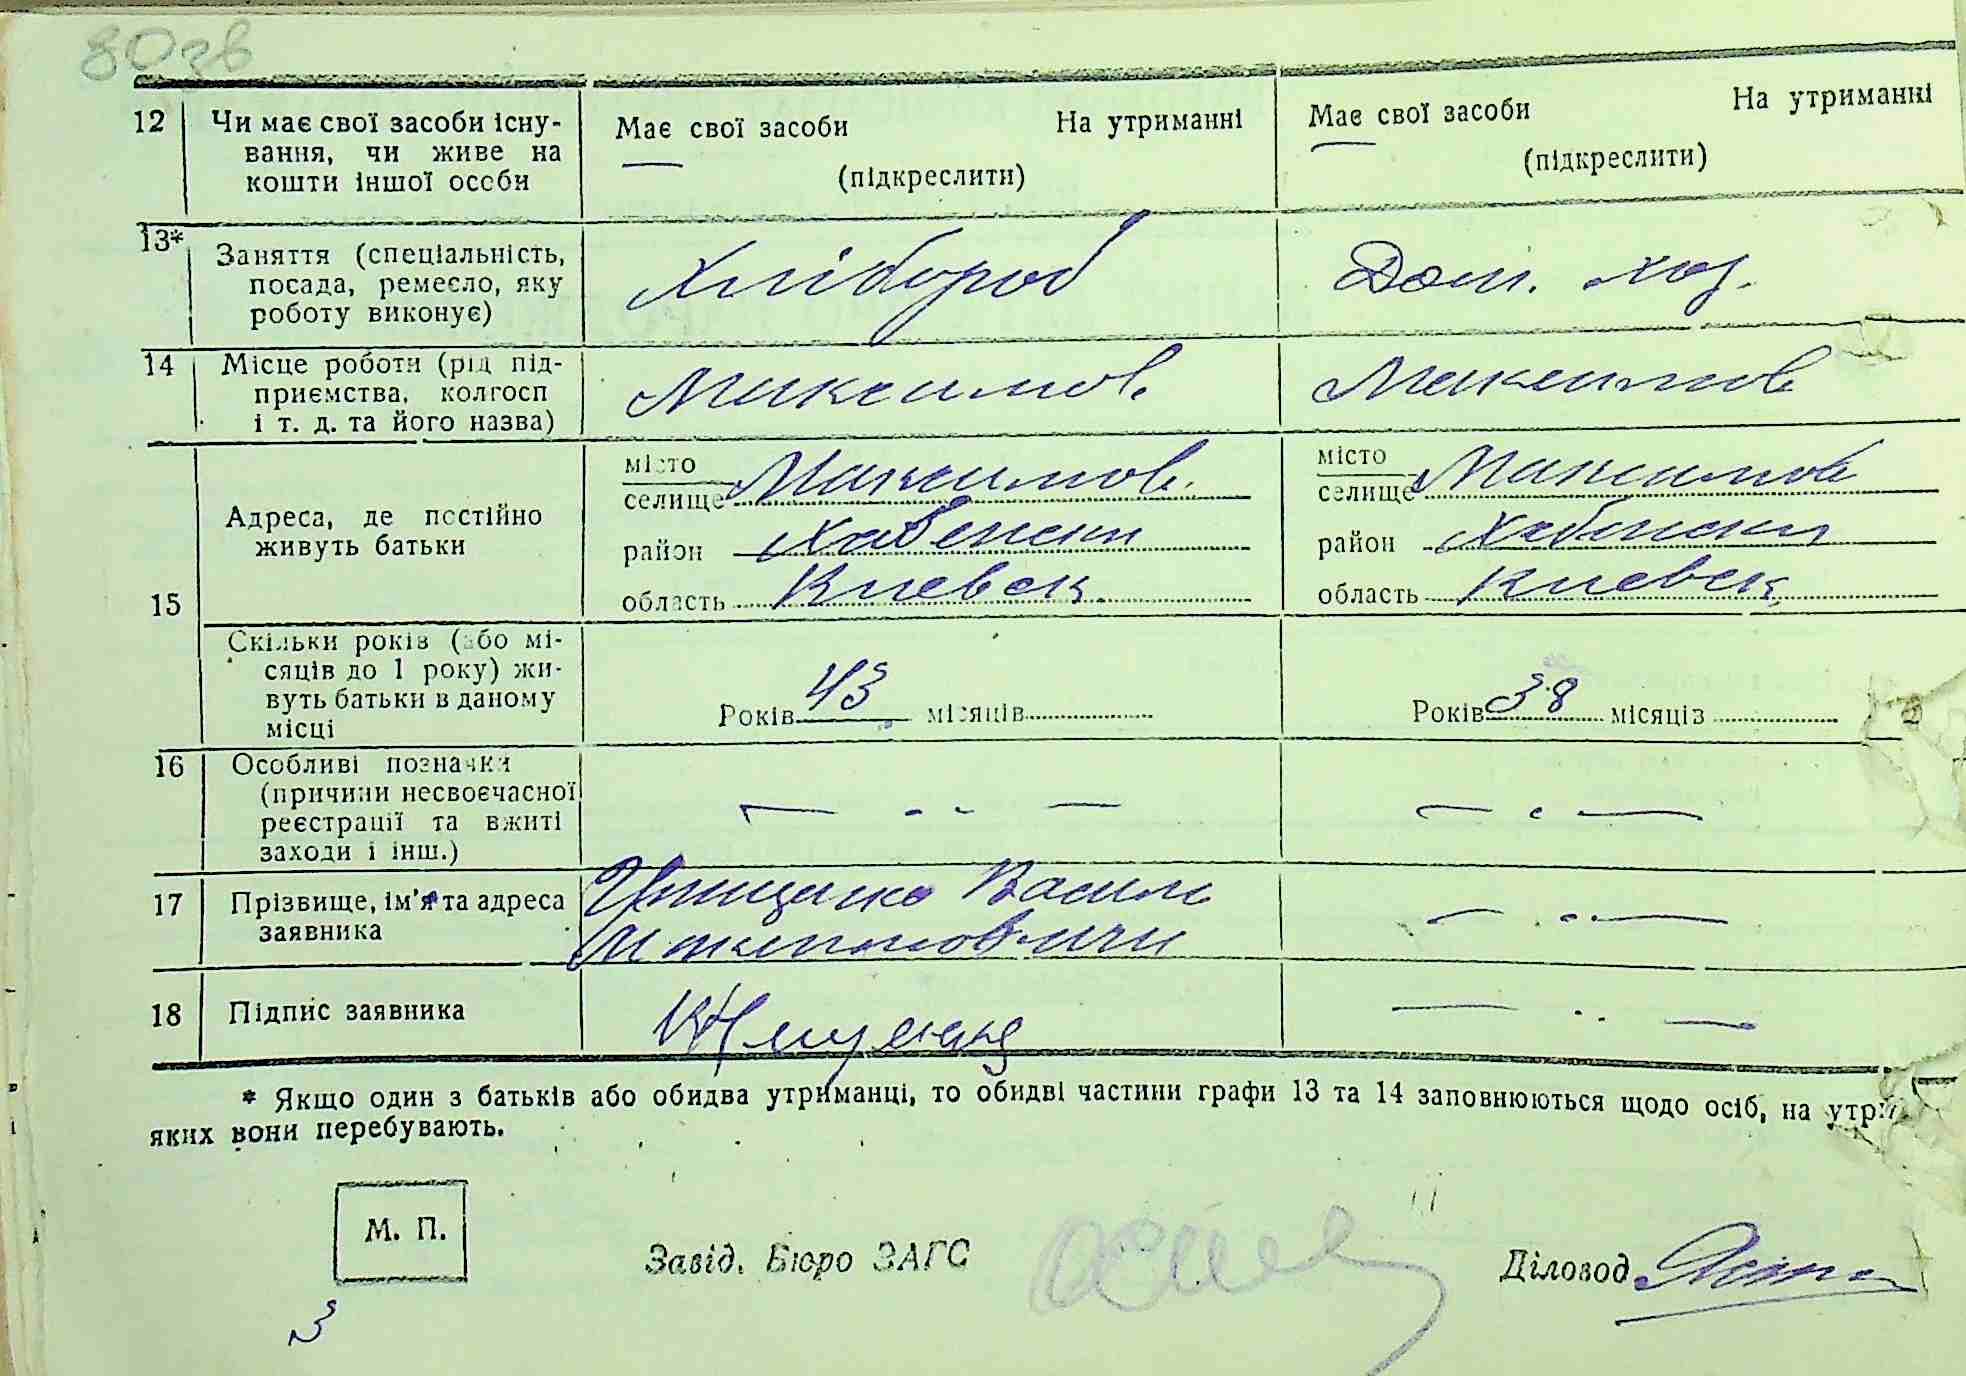 80зв
12 Чи має свої засоби існу-
вання, чи живе на
кошти іншої особи
Має свої засоби На утриманні
(підкреслити)
Має свої засоби На утриманні
(підкреслити)
13* Заняття (спеціальність,
посада, ремесло, яку
роботу виконує)
Хлібороб
Дом. хоз.
14 Місце роботи (рід під-
приємства, колгосп
і т. д. та його назва)
Максимов.
Максимов
15
Адреса, де постійно
живуть батьки
місто
селище Максимов.
район Хабенски
область Киевск.
місто
селище Максимов
район Хабенски
область Киевск.
Скільки років (або мі-
сяців до 1 року) жи-
вуть батьки в даному
місці
Років 43 місяців
Років 38 місяців
16 Особливі позначки
(причини несвоєчасної
реєстрації та вжиті
заходи і інш.)
17 Прізвище, ім'я та адреса
заявника
Василь
18 Підпис заявника
* Якщо один з батьків або обидва утриманці, то обидві частини графи 13 та 14 заповнюються щодо осіб, на утри
яких вони перебувають.
М. П.
Завід. Бюро ЗАГС
Діловод
3